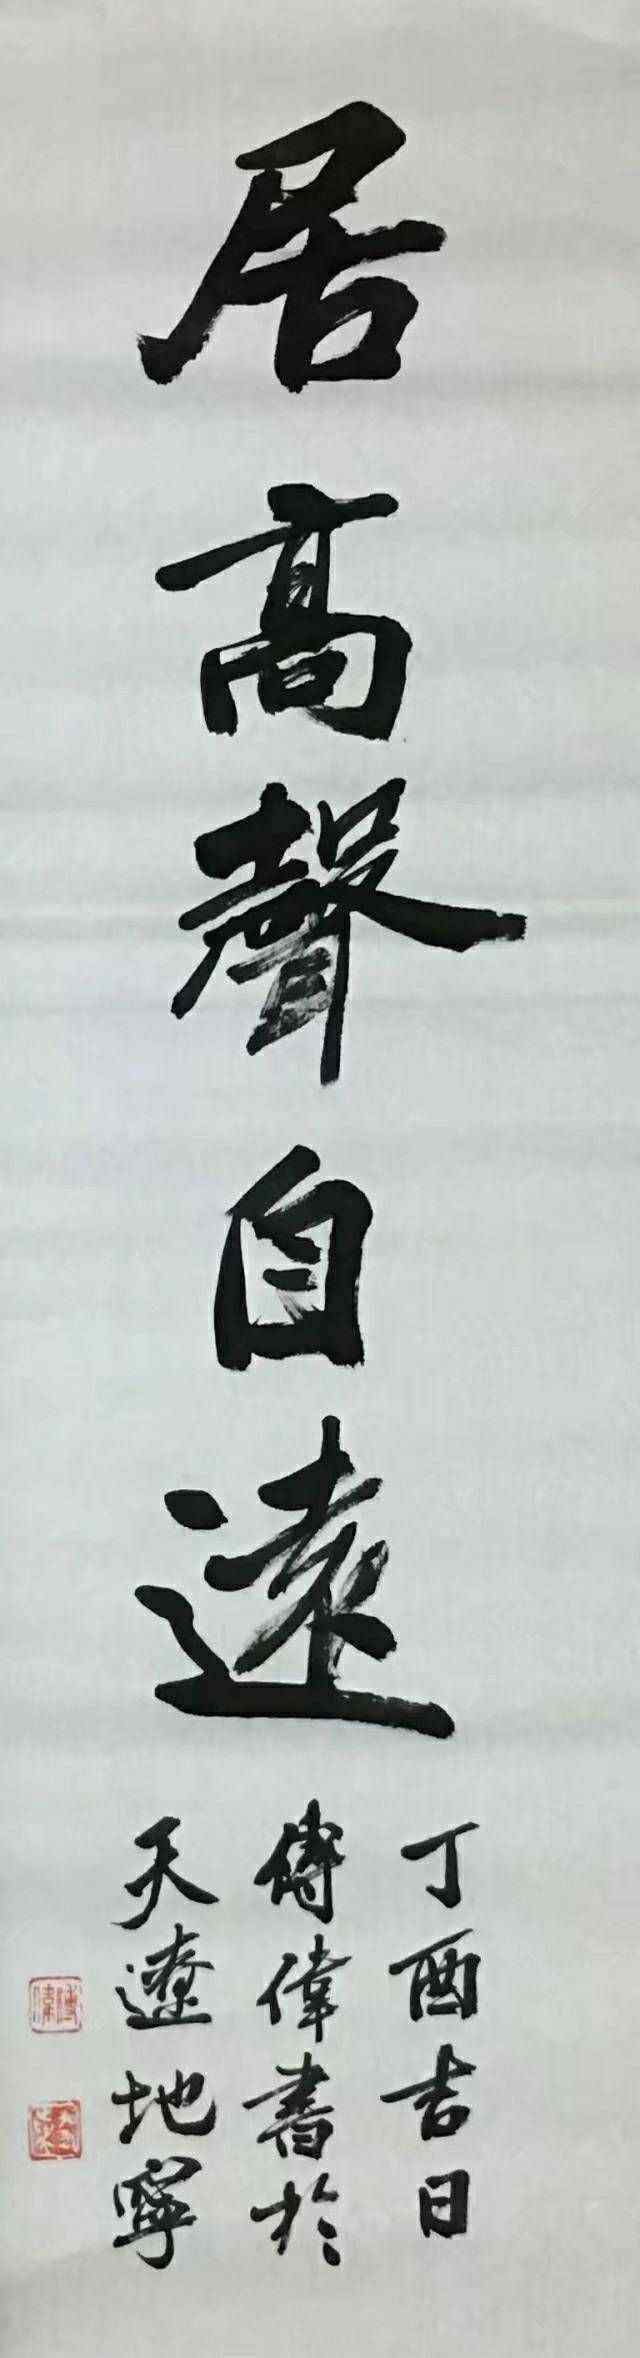 居高聲自遠
丁酉吉日
傅偉書於
天遼地寧
傅偉